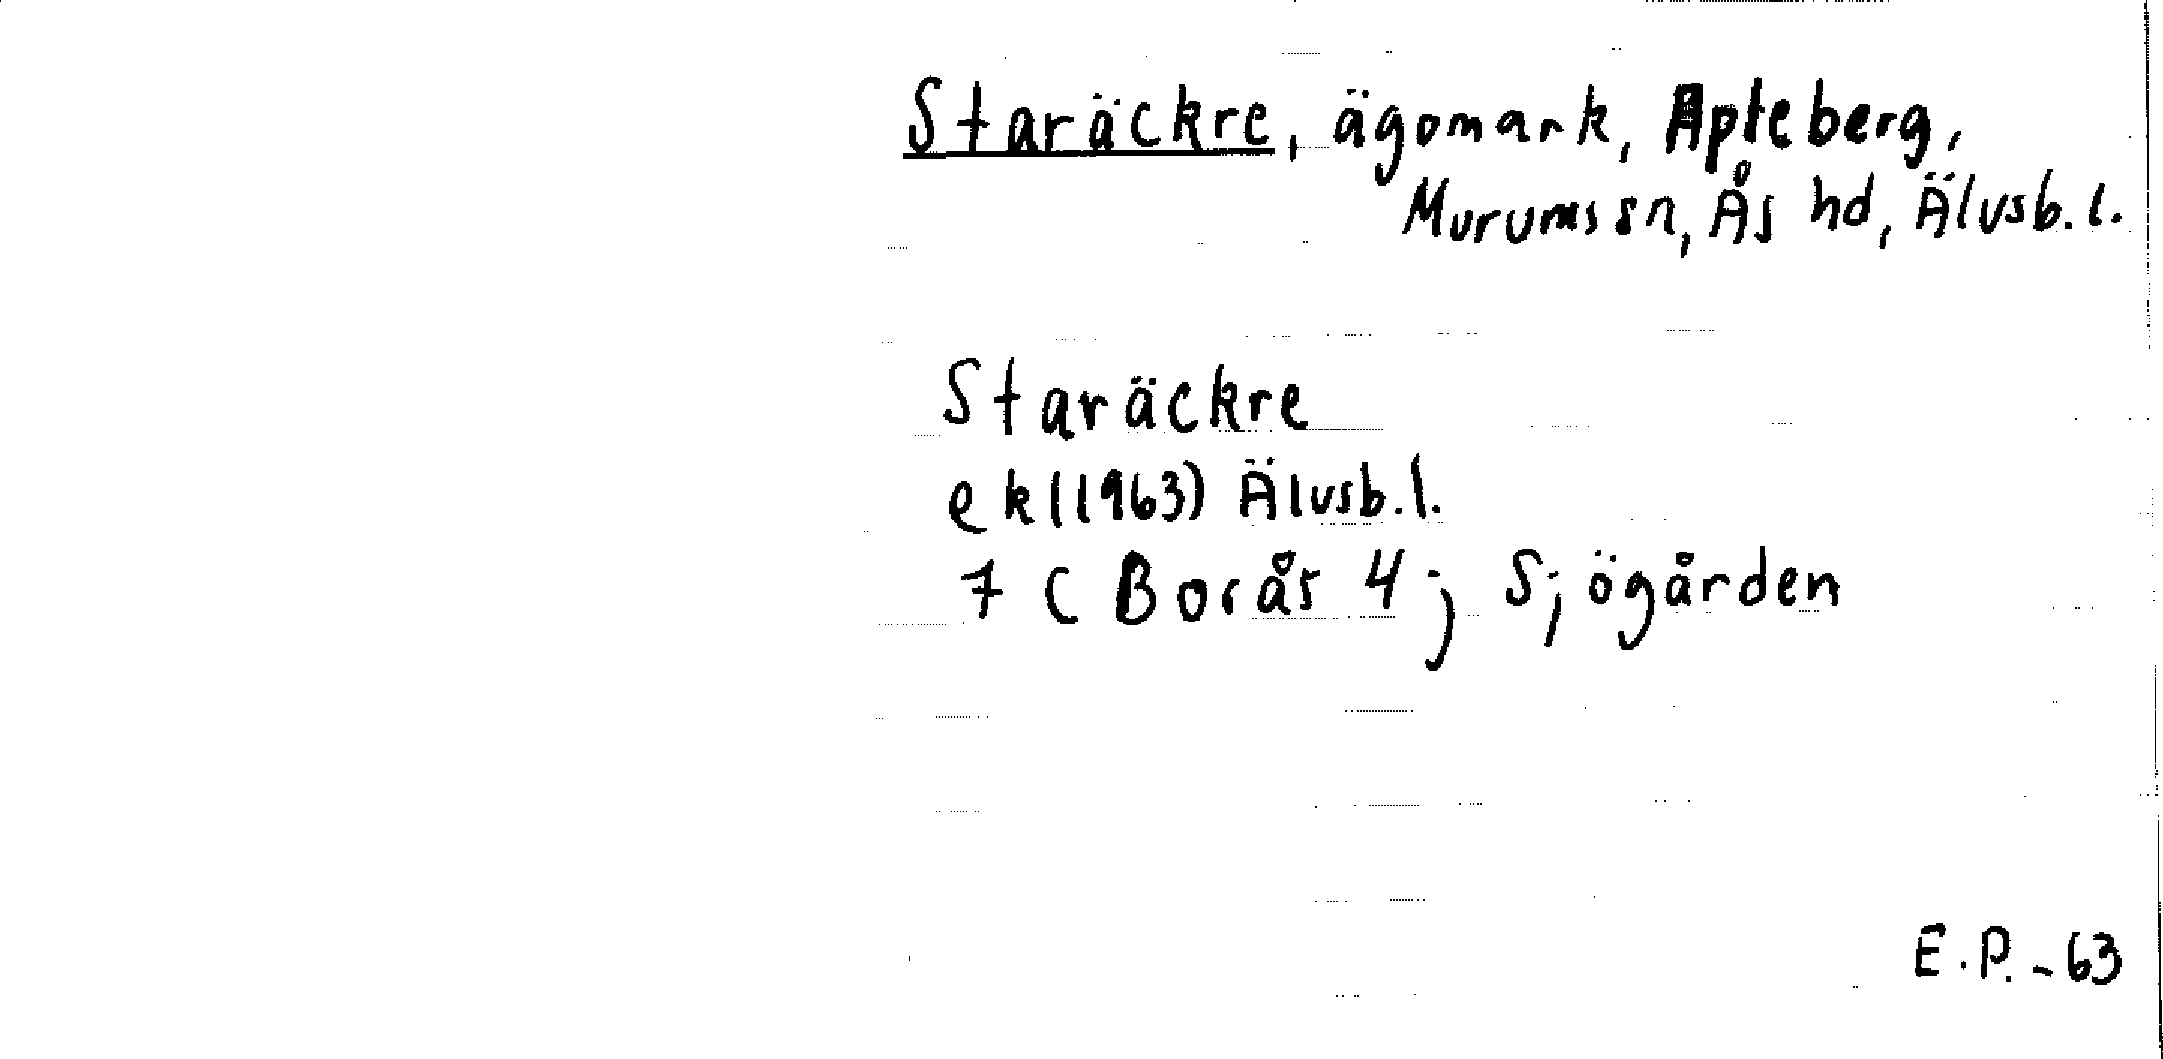 Staräckre, ägomark, Apteberg,
Murums sn, Ås hd, Älvsb.l.
Staräckre
ek (1963) Älvsb.l.
7 C Borås 4 j Sjögården
E.P. -63